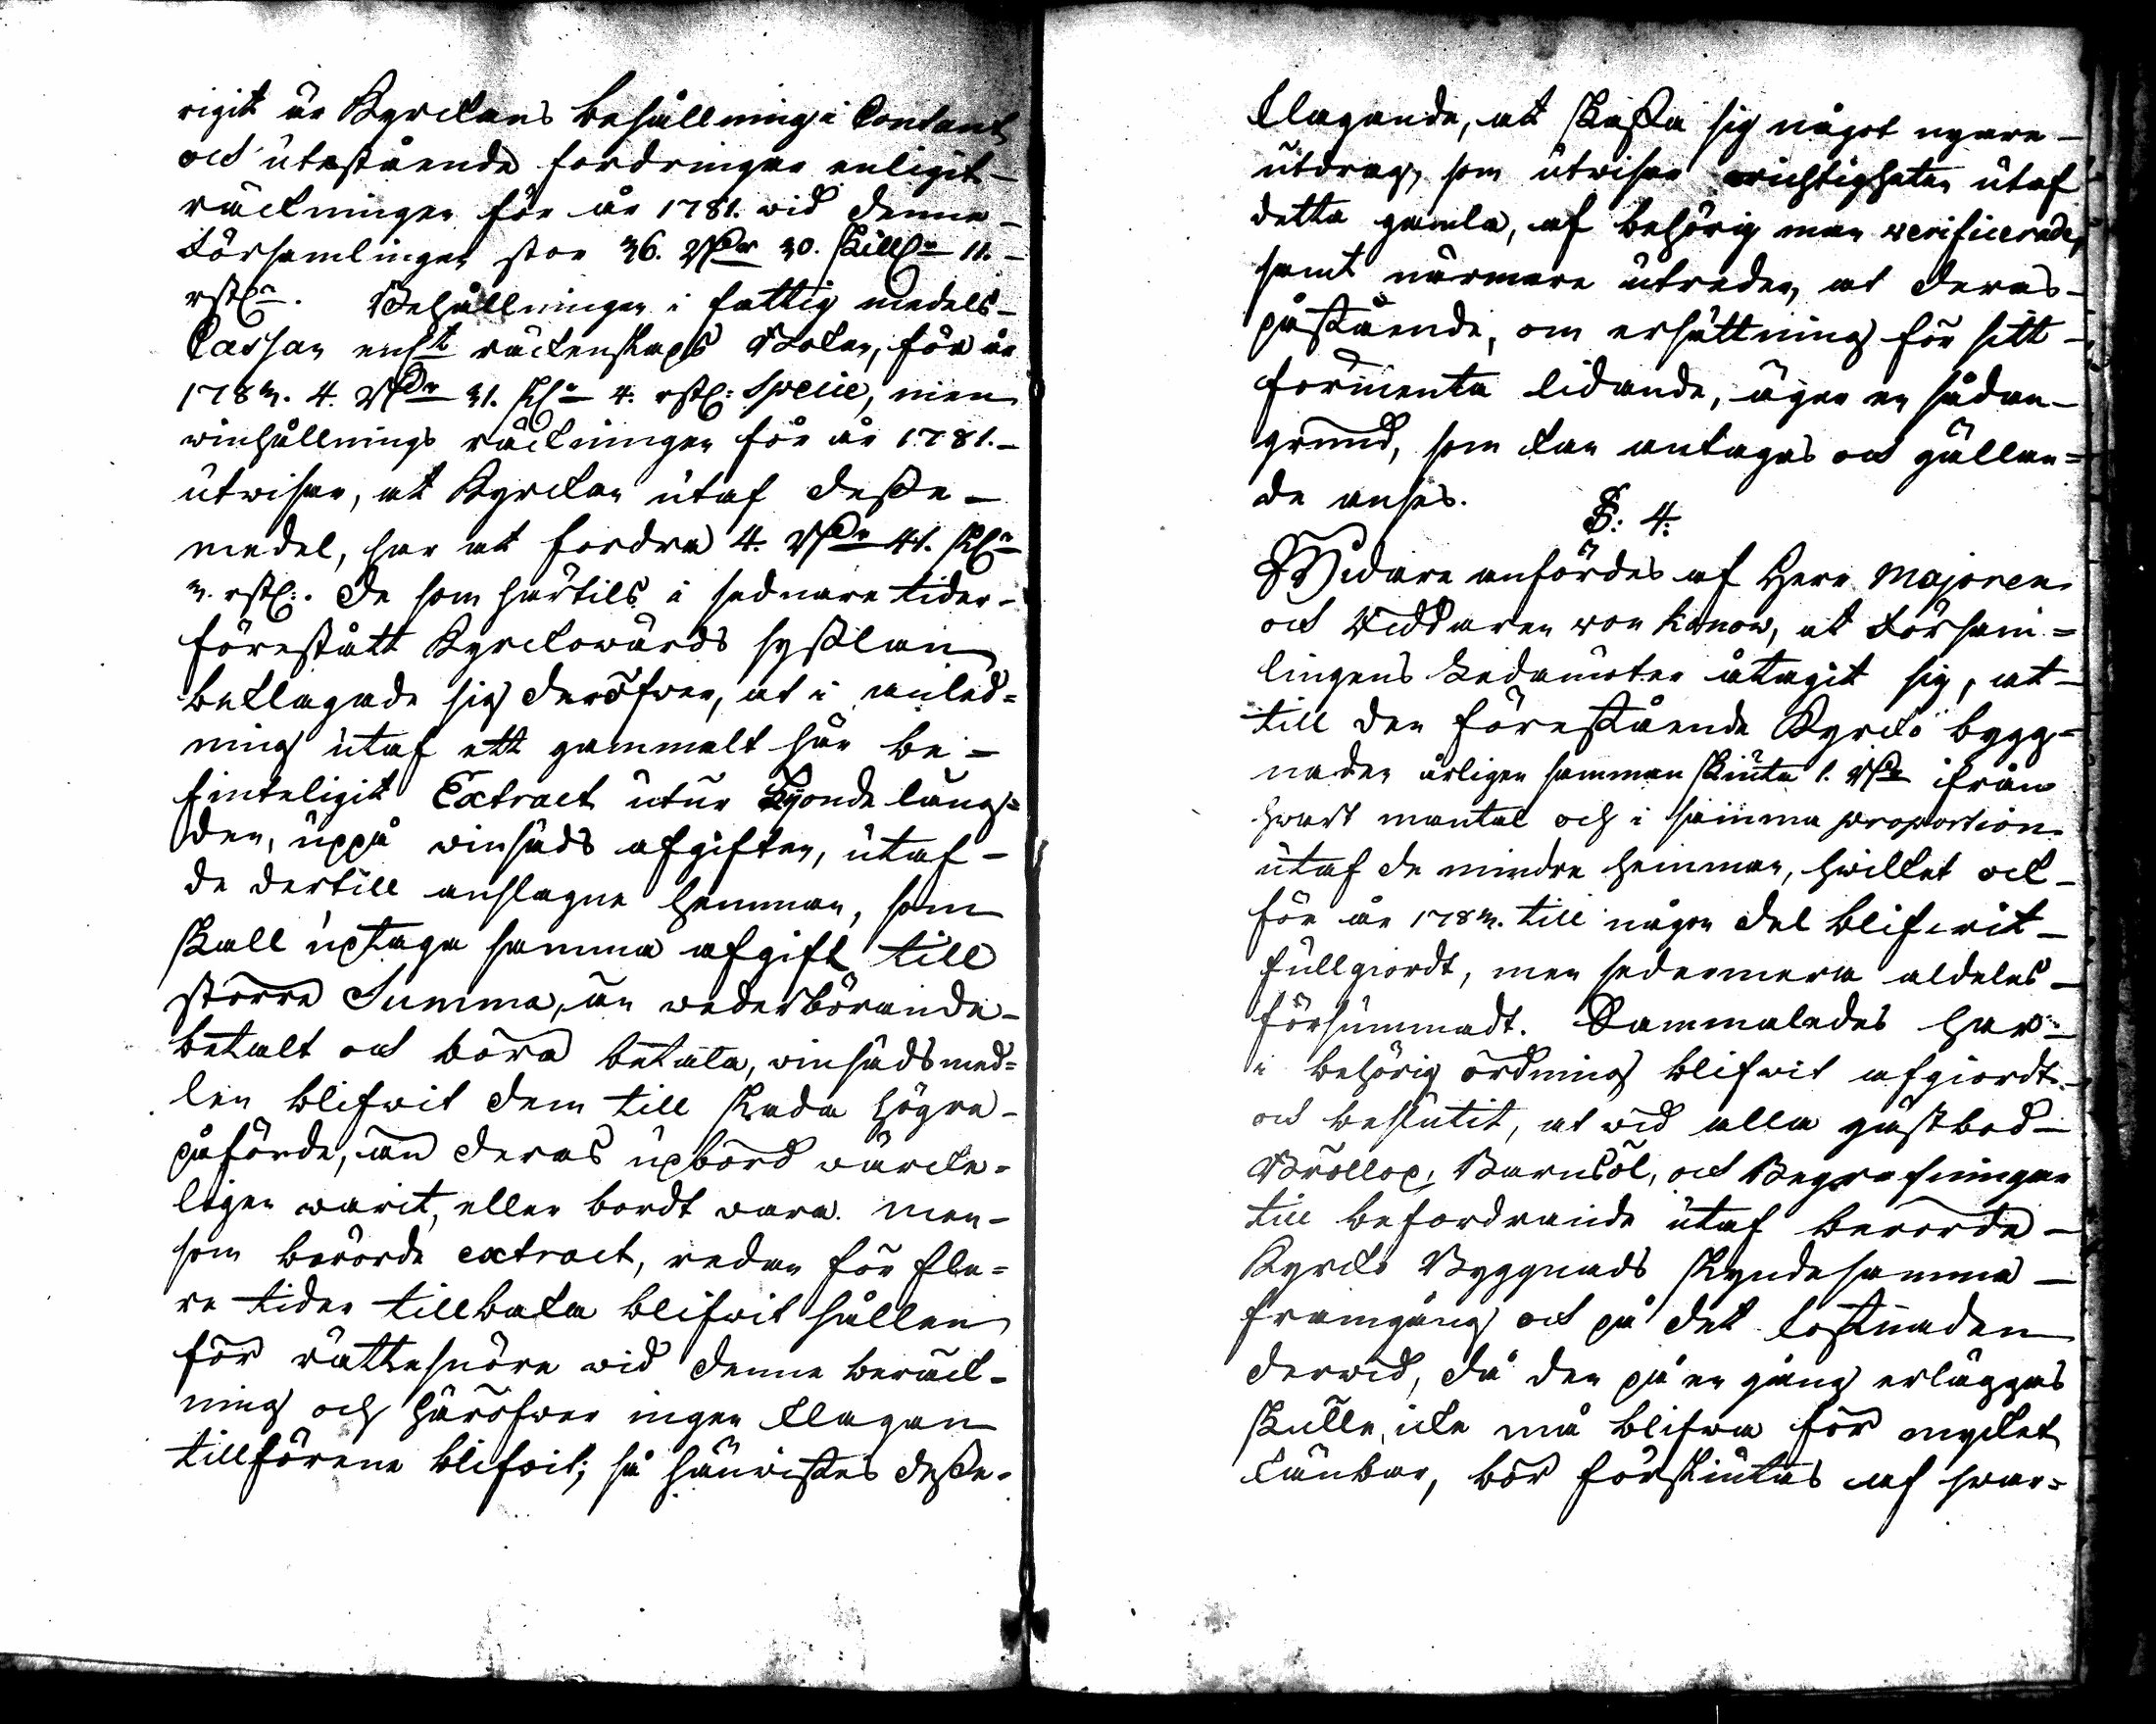 rigit är Kyrckans behållning i Contant
och utestående fordringar enligit
räckningen för år 1781. wid denna
Församlingen stor 36. RDr 30. skillr 11.
rstr. Behållningen i fattig medels
Cassan enligt räckenskaps Boken, för år
1783. 4. RDr 31. sk 4. rst: Specie, men
winhållnings räckningen för år 1781.
utwisar, at Kyrckan utaf desse
medel, har at fordra 4. RDr 41. sk
3. rst:. De som härtils i sednare tider
förestått Kyrckowärds sysslan
beklagade sig deröfwer, at i anled=
ning utaf ett gammalt här be=
finteligit Extract utur Tijonde läng=
den, uppå winsäds afgiften, utaf
de dertill anslagne hemman, som
skall uptaga samma afgift till
större Summa, än wederbörande
betalt och böra betala, winsädsmed=
len blifwit dem till skada högre
påförde, än deras upbörd würcke=
ligen warit, eller bordt vara. men
som berörde extract, redan för fle=
re tider tillbaka blifwit hållen
för rättesnöre wid denne beräck=
ning och häröfwer ingen klagan
tillförene blifwit; så hänwistes desse
klagande, at skaffa sig något nyare
utdrag, som utwisar oricktigheten utaf
detta gamla, af behörig man verificerade,
samt närmare utreden, at deras
påstående, om ersättning för sitt
förmenta lidande, äger en sådan
grund, som kan antagas och gällan=
de anses.
§: 4.
Widare anfördes af Herr Majoren
och Riddaren von Konow, at Försam=
lingens Ledamöter åtagit sig, at
till den förestående Kyrcko bygg=
naden årligen samman skiuta 1. RDr ifrån
hwart mantal och i samma proportion
utaf de mindre hemman, hwilket ock
för år 1783. till någon del blifwit
fullgiordt, men sedermera aldeles
försummadt. Sammaledes har
i behörig ordning blifwit afgiordt
och beslutit, at wid alla gästbod
Bröllop, Barnsöl, och Begrafningar
till befordrande utaf berörde
Kyrcko Byggnads skyndesamma
framgång och på det kostnaden
derwid, då den på en gång erläggas
skulle, icke må blifwa för mycket
känbar, bör förskiutas af hwar=